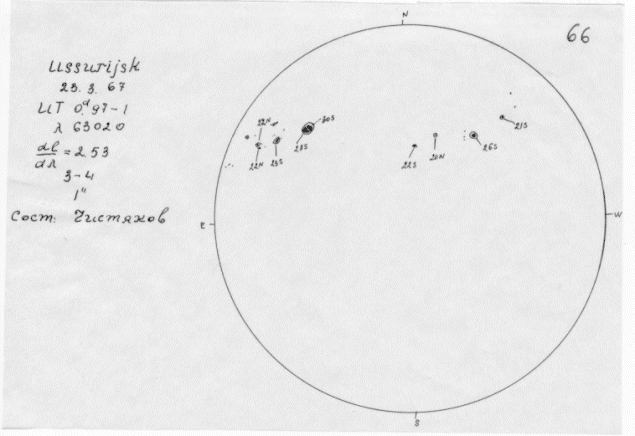 N
66
Ussurijsk
23. 3. 67
UT 0ᵈ.97-1
λ 63020
dl/dλ = 2.53
3-4
1"
Сост: Чистяков
22N
30S
28S
22N
23S
21S
22S
20N
26S
E
W
S